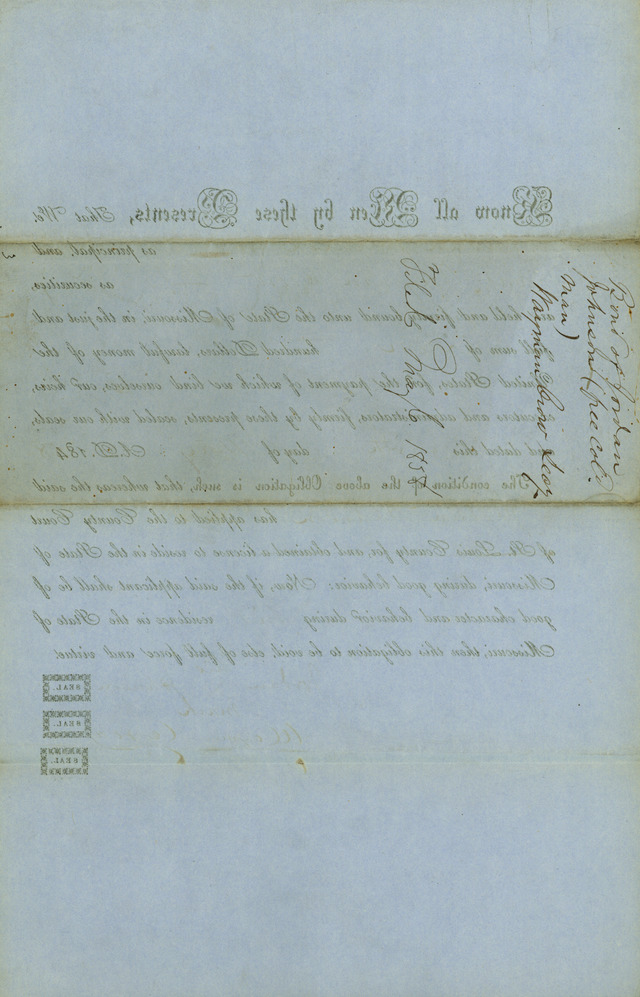 Bond of Jordan
Johnson (free cold
man)
Wayman Crow Secy
Filed May 6 1854
Know all Men by these Presents, That We.
as principal, and
as securities,
are held and firmly bound unto the State of Missouri, in the just and
full sum of hundred Dollars, lawful money of the
United States, for the payment of which we bind ourselves, our heirs,
executors and administrators, firmly by these presents, sealed with our seals,
and dated this day of A.D. 184
The condition of the above Obligation is such, that whereas the said
has applied to the County Court
of St. Louis County for, and obtained a license to reside in the State of
Missouri, during good behavior: Now, if the said applicant shall be of
good character and behavior during residence in the State of
Missouri, then this obligation to be void, else of full force and virtue.
SEAL.
SEAL.
SEAL.